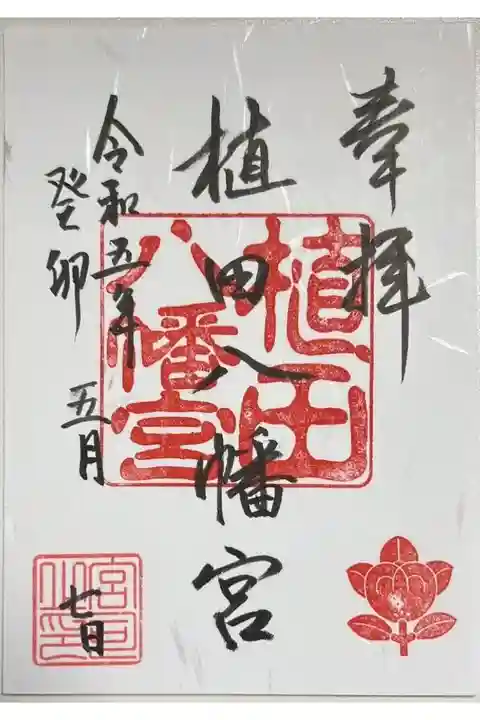 奉拝
植田八幡宮
令和五年
癸卯
五月
七日
植田
八幡宮
宮司
之印